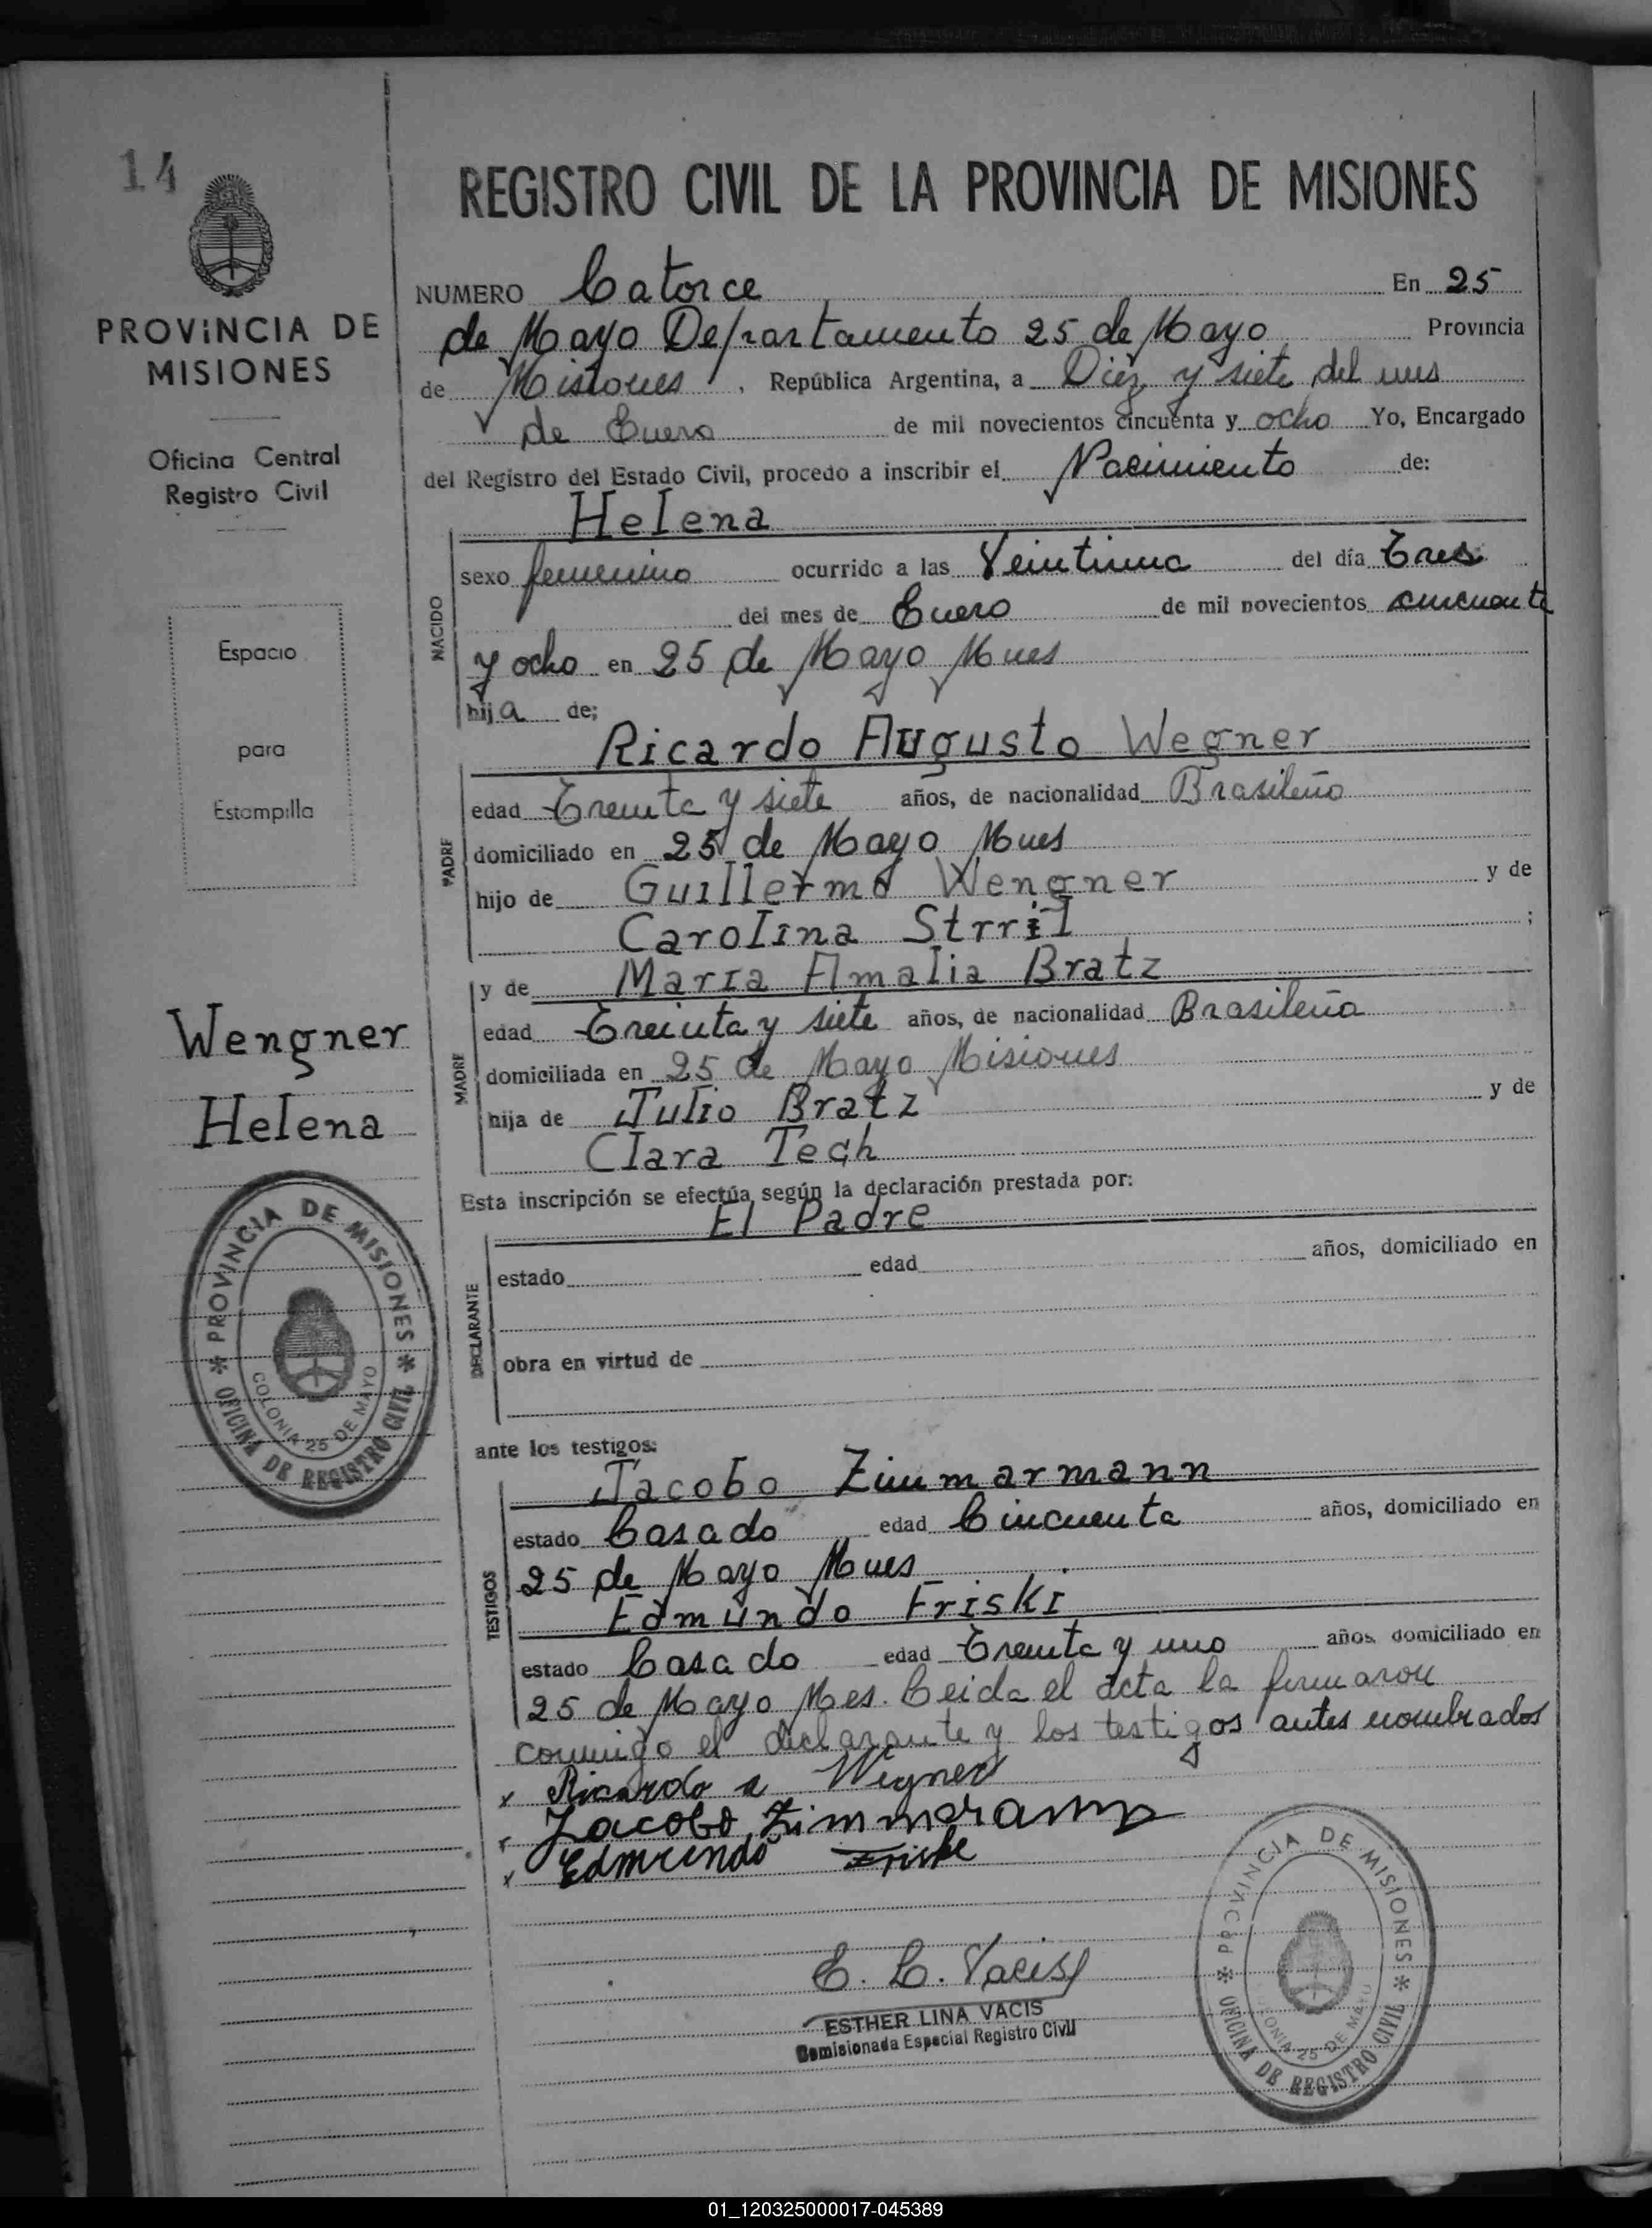 14
REGISTRO CIVIL DE LA PROVINCIA DE MISIONES
PROVINCIA DE
MISIONES
Oficina Central
Registro Civil
Espacio
para
Estampilla
Wengner
Helena
PROVINCIA DE MISIONES
OFICINA DE REGISTRO CIVIL
COLONIA 25 DE MAYO
NUMERO Catorce En 25
de Mayo Departamento 25 de Mayo Provincia
de Misiones, República Argentina, a Diez y siete del mes
de Enero de mil novecientos cincuenta y ocho Yo, Encargado
del Registro del Estado Civil, procedo a inscribir el Nacimiento de:
Helena
NACIDO
sexo femenino ocurrido a las Veintiuna del día Tres
del mes de Enero de mil novecientos cincuenta
y ocho en 25 de Mayo Mnes
hija de;
Ricardo Augusto Wegner
PADRE
edad Treinta y siete años, de nacionalidad Brasileño
domiciliado en 25 de Mayo Mnes
hijo de Guillermo Wengner y de
Carolina Strril;
y de Maria Amalia Bratz
MADRE
edad Treinta y siete años, de nacionalidad Brasileña
domiciliada en 25 de Mayo Misiones
hija de Julio Bratz y de
Clara Tech
Esta inscripción se efectúa según la declaración prestada por:
El Padre
DECLARANTE
estado edad años, domiciliado en
obra en virtud de
ante los testigos:
Jacobo Zimmarmann
TESTIGOS
estado Casado edad Cincuenta años, domiciliado en
25 de Mayo Mnes
Edmundo Friski
estado Casado edad Treinta y uno años domiciliado en
25 de Mayo Mes. Leida el acta la firmaron
conmigo el declarante y los testigos antes nombrados
x Ricardo a Wegner
x Jacobo Zimmeramnn
x Edmundo Friske
E. L. Vacis
ESTHER LINA VACIS
Comisionada Especial Registro Civil
PROVINCIA DE MISIONES
OFICINA DE REGISTRO CIVIL
COLONIA 25 DE MAYO
01_120325000017-045389